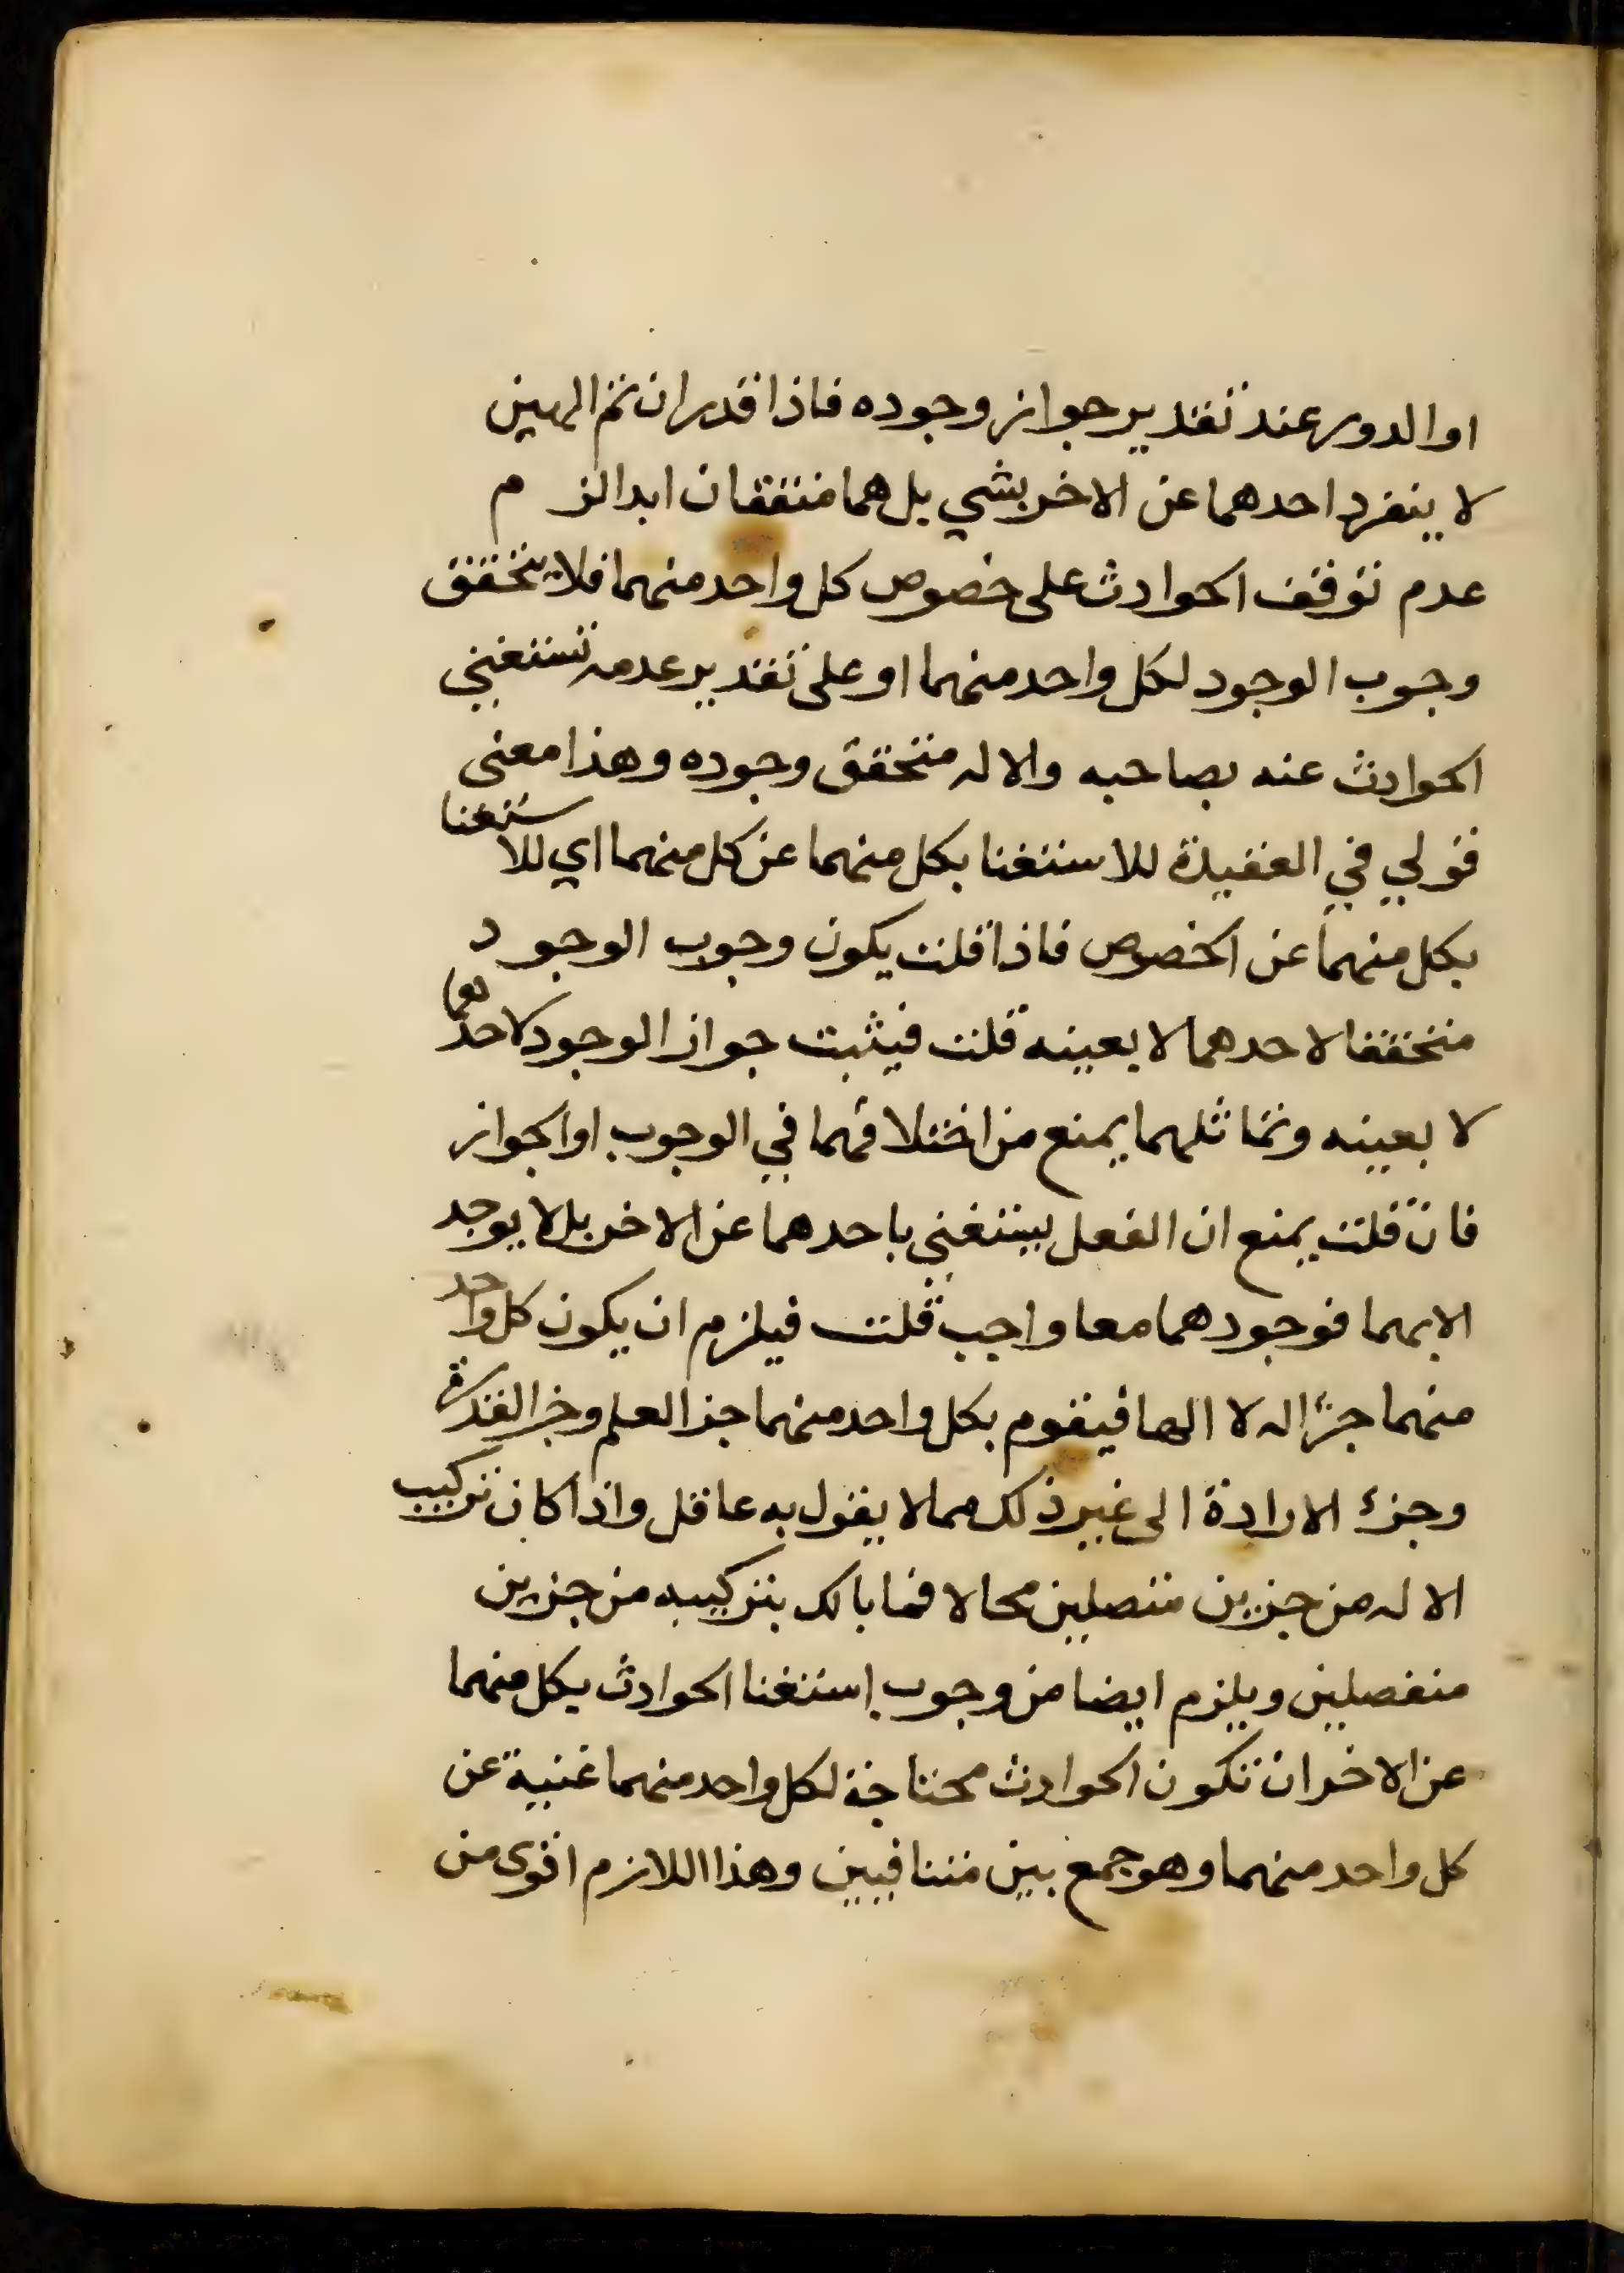 او الدور عند تقدير جواز وجوده فاذا قدر ان ثم الهين
لا ينفرد احدهما عن الاخر بشي بل هما متفقان ابدا لزم
عدم توقف الحوادث على خصوص كل واحد منهما فلا يتحقق
وجوب الوجود لكل واحد منهما او على تقدير عدمه تستغني
الحوادث عنه بصاحبه والاله متحقق وجوده وهذا معنى
قولي في العقيدة للاستغنا بكل منهما عن كل منهما اي للاستغنا
بكل منهما عن الخصوص فاذا قلت يكون وجوب الوجود
متحققا لاحدهما لا بعينه قلت فيثبت جواز الوجود لاحدهما
لا بعينه وتماثلهما يمنع من اختلافهما في الوجوب او الجواز
فان قلت يمنع ان الفعل يستغني باحدهما عن الاخر بل لا يوجد
الا بهما فوجودهما معا واجب قلت فيلزم ان يكون كل واحد
منهما جزء اله لا الها فيقوم بكل واحد منهما جز العلم وجز القدرة
وجزء الارادة الى غير ذلك مما لا يقول به عاقل واذا كان تركيب
الاله من جزين متصلين محالا فما بالك بتركيبه من جزين
منفصلين ويلزم ايضا من وجوب استغنا الحوادث بكل منهما
عن الاخر ان تكون الحوادث محتاجة لكل واحد منهما غنية عن
كل واحد منهما وهو جمع بين متنافيين وهذا اللازم اقوى من